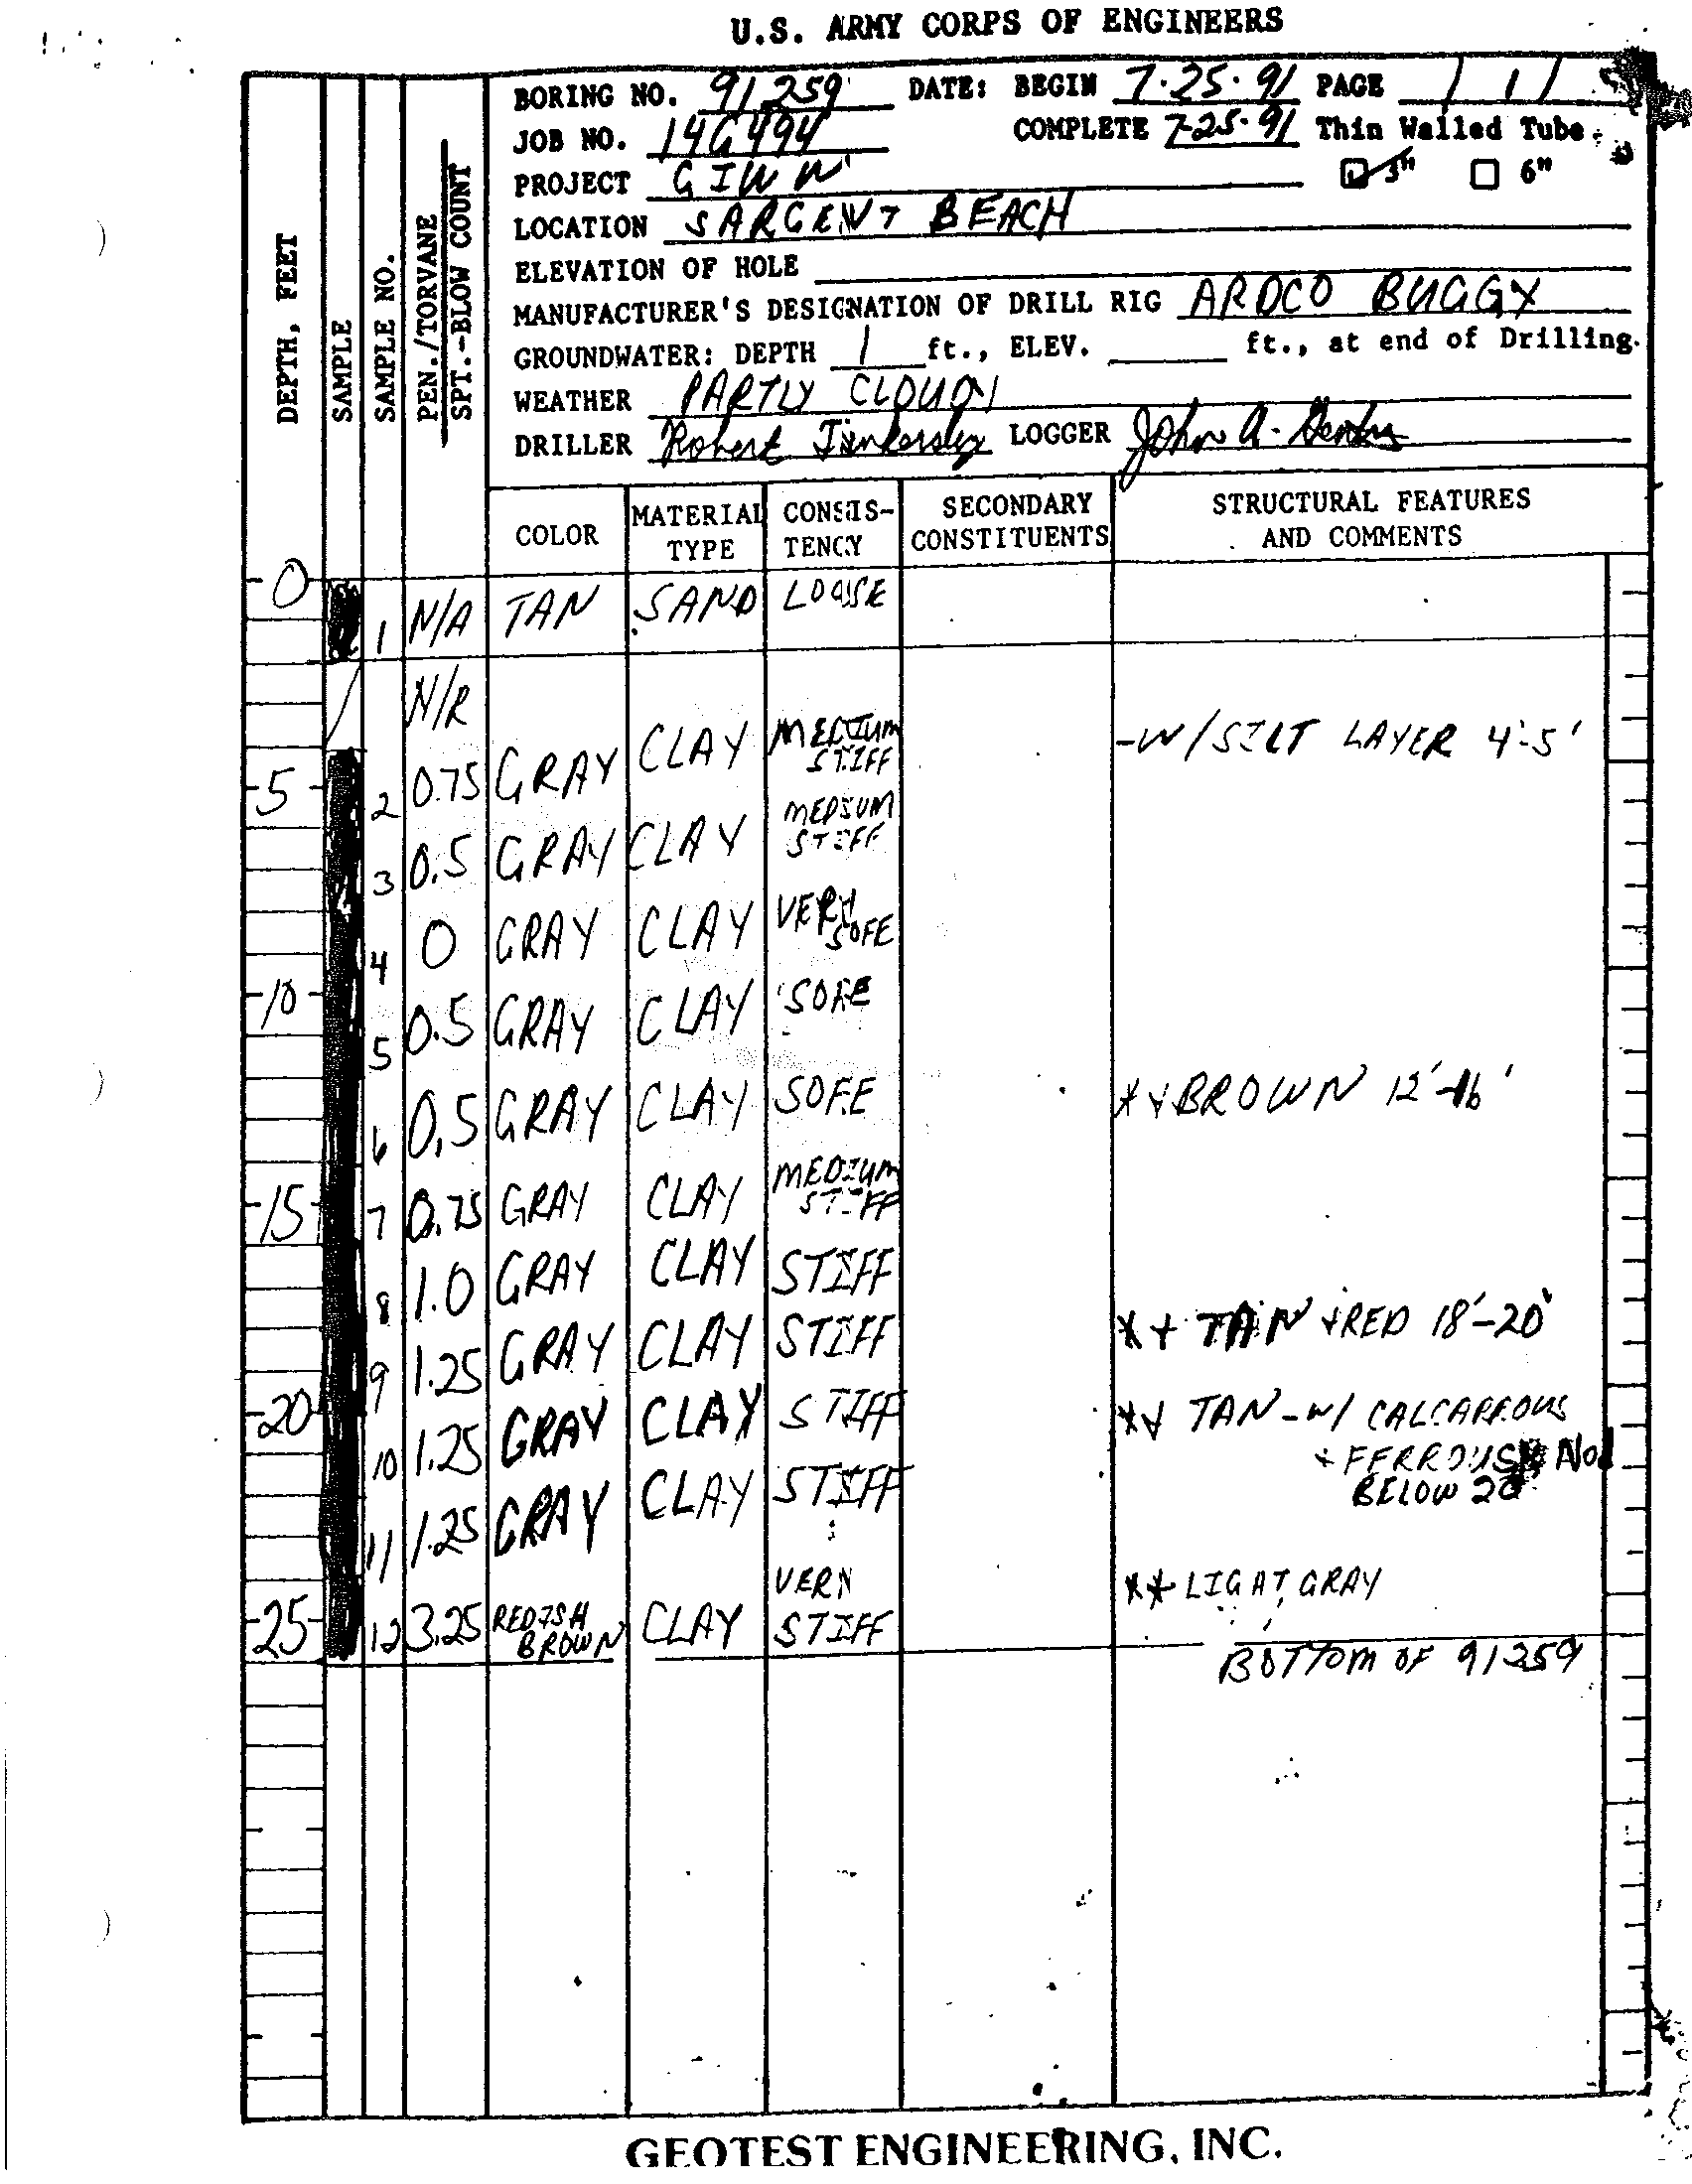 U.S. ARMY CORPS OF ENGINEERS
BORING NO. 91259 DATE: BEGIN 7·25·91 PAGE 1 / 1
JOB NO. 14G494 COMPLETE 7-25-91 Thin Walled Tube
PROJECT GIWW 3" 6"
LOCATION SARGENT BEACH
ELEVATION OF HOLE
MANUFACTURER'S DESIGNATION OF DRILL RIG ARDCO BUGGY
GROUNDWATER: DEPTH 1 ft., ELEV. ft., at end of Drilling.
WEATHER PARTLY CLOUDY
DRILLER Robert Tankersley LOGGER John A.
DEPTH, FEET
SAMPLE
SAMPLE NO.
PEN./TORVANE
SPT.-BLOW COUNT
COLOR
MATERIAL
TYPE
CONSIS-
TENCY
SECONDARY
CONSTITUENTS
STRUCTURAL FEATURES
AND COMMENTS
0
1 N/A TAN SAND LOOSE
N/R
5 2 0.75 GRAY CLAY MEDIUM
STIFF
-W/SILT LAYER 4'-5'
3 0.5 GRAY CLAY MEDIUM
STIFF
4 0 GRAY CLAY VERY
SOFE
10
5 0.5 GRAY CLAY SOFE
6 0.5 GRAY CLAY SOFE ** BROWN 12'-16'
15 7 0.75 GRAY CLAY MEDIUM
STIFF
8 1.0 GRAY CLAY STIFF
9 1.25 GRAY CLAY STIFF ** TAN +RED 18'-20'
20 10 1.25 GRAY CLAY STIFF ** TAN-W/ CALCAREOUS
+ FERROUS NOD
BELOW 20'
11 1.25 GRAY CLAY STIFF
25 12 3.25 REDISH
BROWN
CLAY VERY
STIFF
** LIGHT GRAY
BOTTOM OF 91259
GEOTEST ENGINEERING, INC.